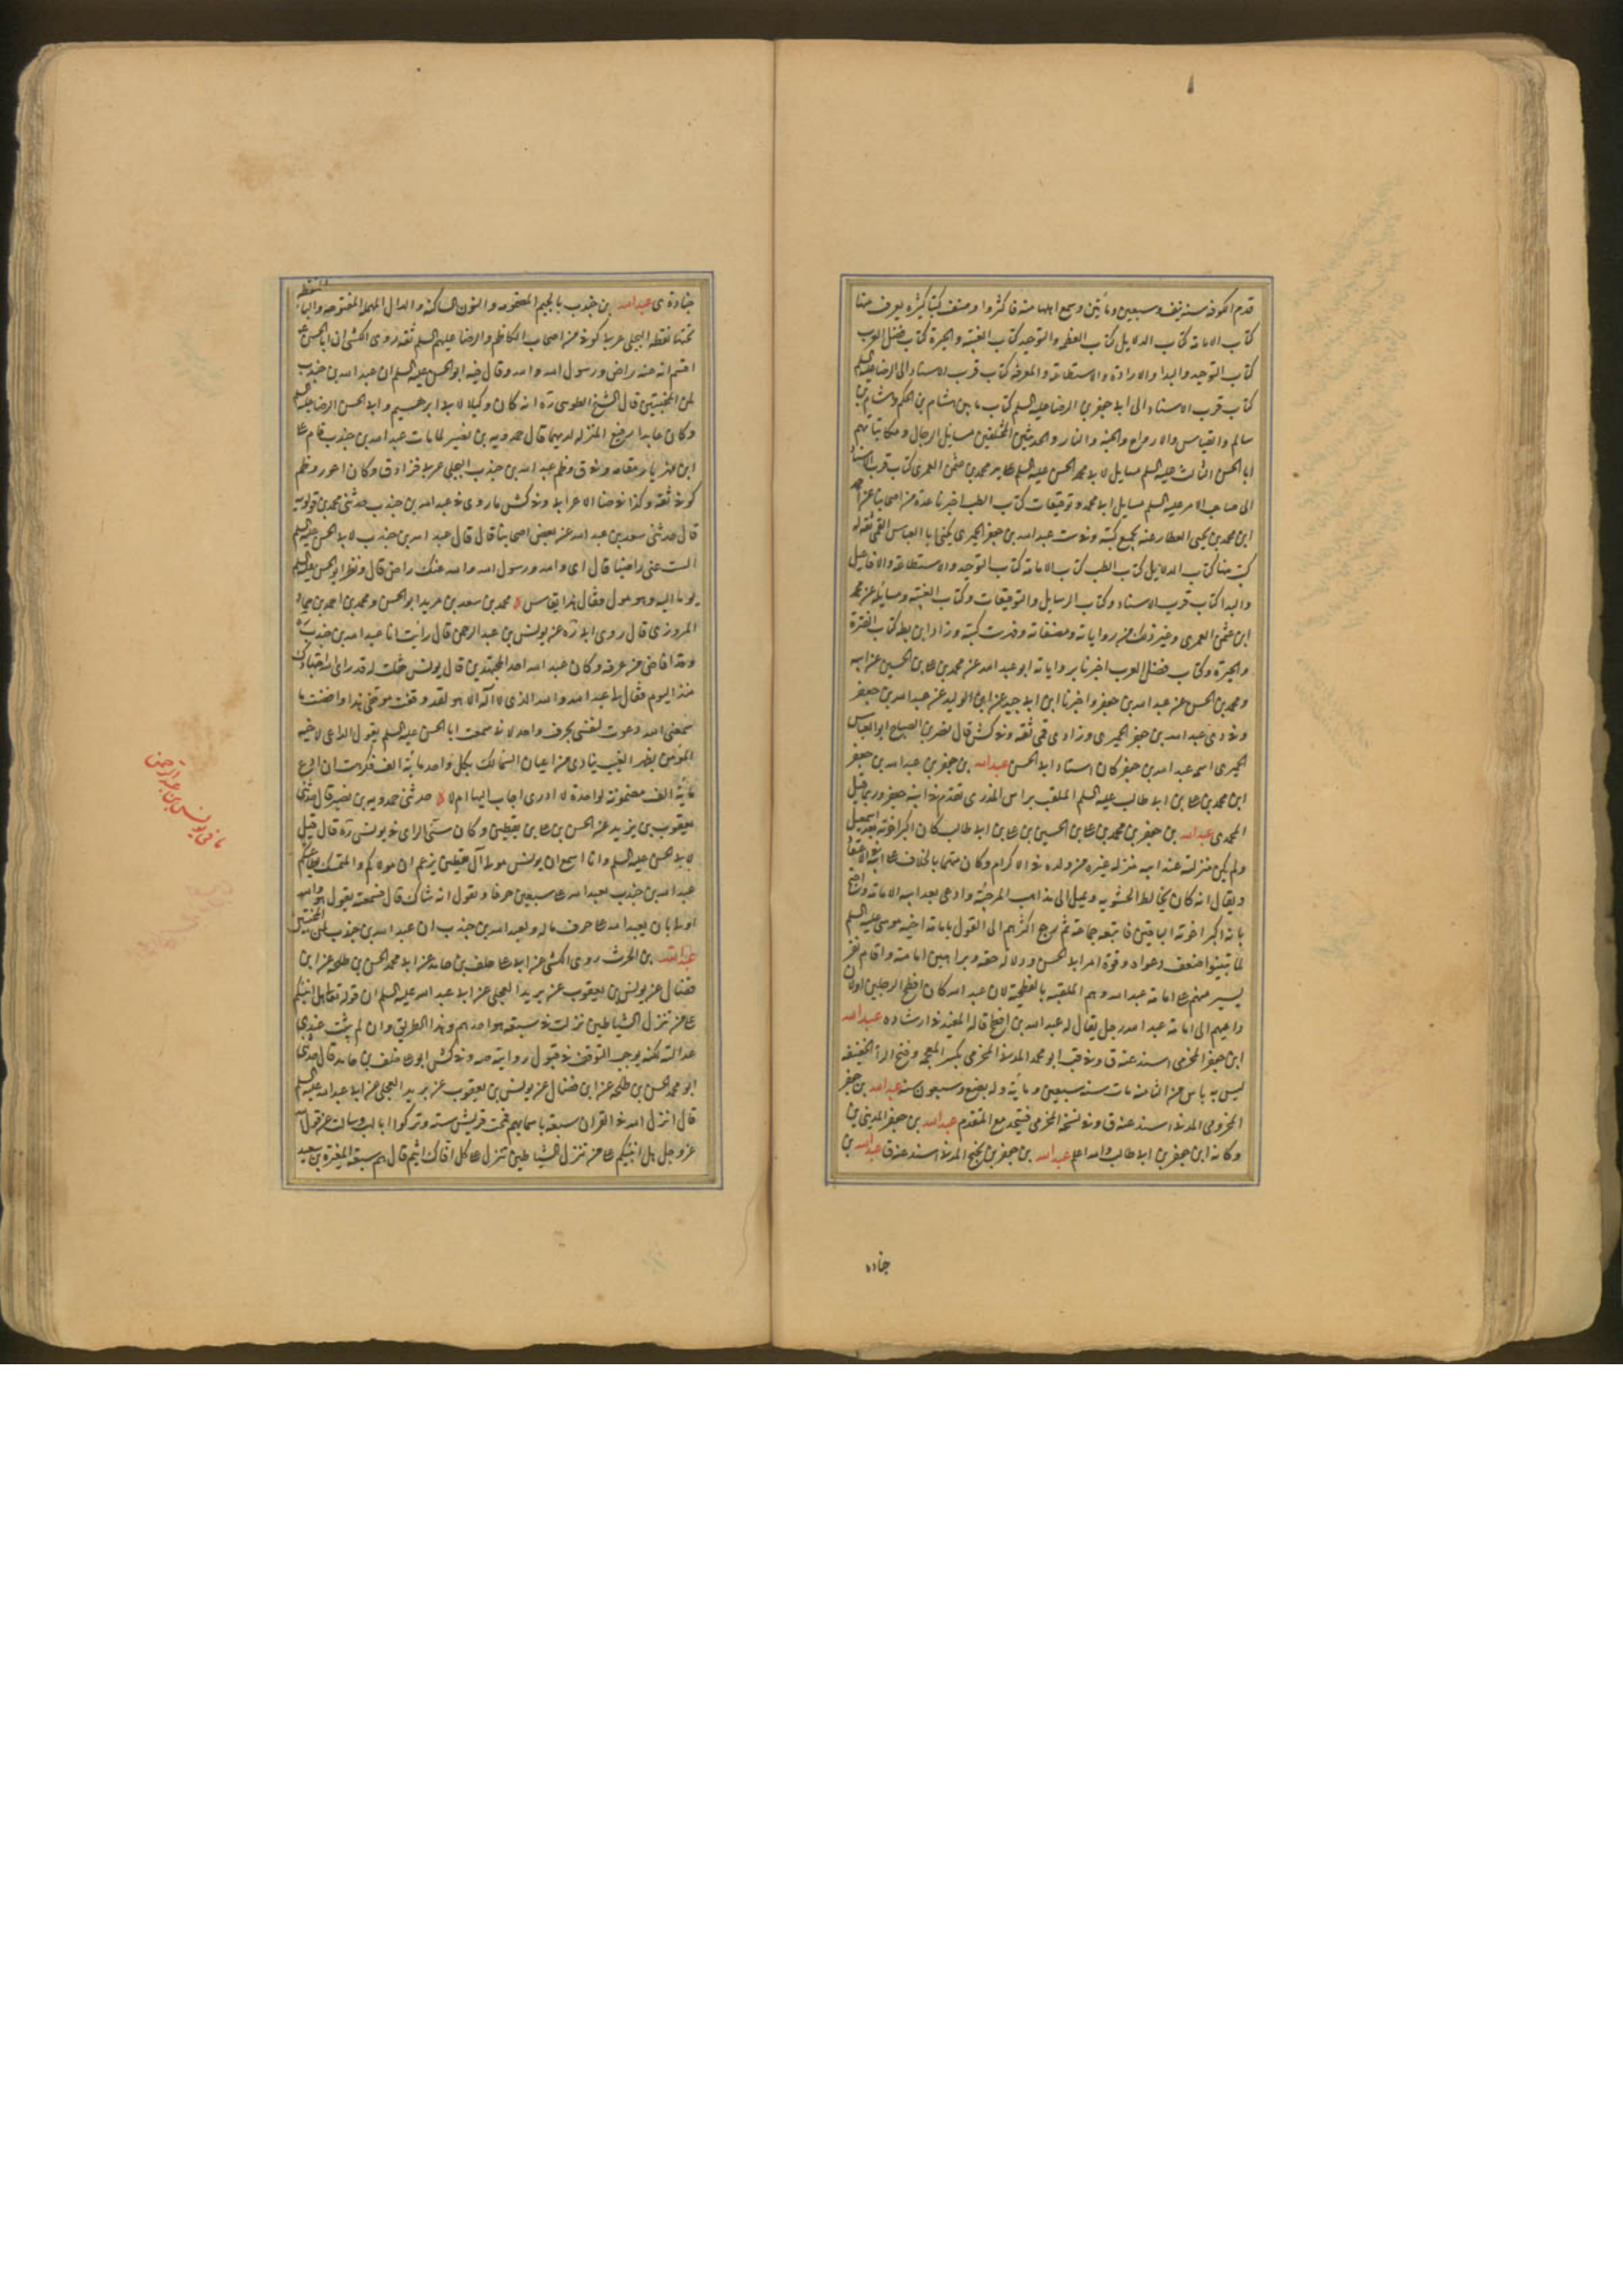 قدم الكوفة سنة نيف وسبعين ومأتين وسمع اهلها منه فاكثروا وصنف كتبا كثيرة يعرف منها
كتاب الامامة كتاب الدلايل كتاب العظمة والتوحيد كتاب الغيبة والحيرة كتاب فضل العرب
كتاب التوحيد والبدا والارادة والاستطاعة والمعرفة كتاب قرب الاسناد الى الرضا عليه السلم
كتاب قرب الاسناد الى ابى جعفر بن الرضا عليه السلم كتاب ما بين هشام بن الحكم وهشام بن
سالم والقياس والارواح والجنة والنار والحديثين المختلفين مسايل الرجال ومكاتباتهم
ابا الحسن الثالث عليه السلم مسايل لابى محمد الحسن عليه السلم على يد محمد بن عثمن العمرى كتاب قرب الاسناد
الى صاحب الامر عليه السلم مسايل ابى محمد وتوقيعات كتاب الطب اخبرنا عدة من اصحابنا عن احمد
ابن محمد بن يحيى العطار عنه بجميع كتبه وفى ست عبد الله بن جعفر الحميرى يكنى ابا العباس القمى ثقة له
كتب منها كتاب الدلايل كتاب الطب كتاب الامامة كتاب التوحيد والاستطاعة والافاعيل
والبدا كتاب قرب الاسناد وكتاب الرسايل والتوقيعات وكتاب الغيبة ومسايله عن محمد
ابن عثمن العمرى وغير ذلك من رواياته ومصنفاته وفهرست كتبه وزاد ابن بطة كتاب الفترة
والحيرة وكتاب فضل العرب اخبرنا برواياته ابو عبد الله عن محمد بن على بن الحسين عن ابيه
ومحمد بن الحسن عن عبد الله بن جعفر واخبرنا ابن ابى جيد عن ابن الوليد عن عبد الله بن جعفر
وفى دى عبد الله بن جعفر الحميرى وزاد دى قمى ثقة وفى كش قال نصر بن الصباح ابو العباس
الحميرى اسمه عبد الله بن جعفر كان استاد ابى الحسن عبد الله بن جعفر بن عبد الله بن جعفر
ابن محمد بن على بن ابى طالب عليه السلم الملقب براس المذرى تقدم فى ابنه جعفر وربما قيل
المحمدى عبد الله بن جعفر بن محمد بن على بن الحسين بن على بن ابى طالب كان اكبر اخوته بعد اسمعيل
ولم يكن منزلته عند ابيه منزلة غيره من ولده فى الاكرام وكان متهما بالخلاف على ابيه فى الاعتقاد
ويقال انه كان يخالط الحشوية ويميل الى مذاهب المرجئة وادعى بعد ابيه الامامة واحتج
بانه اكبر اخوته الباقين فاتبعه جماعة ثم رجع اكثرهم الى القول بامامة اخيه موسى عليه السلم
لما تبينوا ضعف دعواه وقوة امر ابى الحسن ودلالة حقه وبراهين امامته واقام نفر
يسير منهم على امامة عبد الله وهم الملقبة بالفطحية لان عبد الله كان افطح الرجلين او لان
داعيهم الى امامة عبد الله رجل يقال له عبد الله بن افطح قاله المفيد فى ارشاده عبد الله
ابن جعفر المخرمى اسند عنه ق وفى قب ابو محمد المدنى المخرمى بكسر المعجمة وفتح الرا الخفيفة
ليس به باس من الثامنة مات سنة سبعين ومأية وله بضع وسبعون سنة عبد الله بن جعفر
المخزومى المدنى اسند عنه ق وفى نسخة المخرمى فيتحد مع المتقدم عبد الله بن جعفر المدينى
وكانه ابن جعفر بن ابى طالب والله اعلم عبد الله بن جعفر بن نجيح المدنى اسند عنه ق عبد الله بن
جناده
جنادة ى عبد الله بن جندب بالجيم المضمومة والنون الساكنة والدال المهملة المفتوحة والباء
تحتها نقطة البجلى عربى كوفى من اصحاب الكاظم والرضا عليهم السلم ثقة روى الكشى ان ابا الحسن ع
اقسم انه عنه راض ورسول الله والله وقال فيه ابو الحسن عليه السلم ان عبد الله بن جندب
لمن المخبتين قال الشيخ الطوسى ره انه كان وكيلا لابى ابرهيم وابى الحسن الرضا عليهم السلم
وكان عابدا رفيع المنزلة لديهما قال حمدويه بن نصير لما مات عبد الله بن جندب قام على
ابن مهزيار مقامه وفى ق وظم عبد الله بن جندب البجلى عربى فزاد ق وكان اعور وظم
كوفى ثقة وكذا فى ضا الا عربى وفى كش ما روى فى عبد الله بن جندب حدثنى محمد بن قولويه
قال حدثنى سعد بن عبد الله عن بعض اصحابنا قال قال عبد الله بن جندب لابى الحسن عليه السلم
الست عنى راضيا قال اى والله ورسول الله والله عنك راض قال ونظر ابو الحسن عليه السلم
يوما اليه وهو مول فقال هذا يقاس محمد بن سعد بن مزيد ابو الحسن ومحمد بن احمد بن حماد
المروزى قال روى ابى ره عن يونس بن عبد الرحمن قال رأيت انا عبد الله بن جندب
وقد افاض من عرفة وكان عبد الله احد المجتهدين قال يونس فقلت له قد راى الله اجتهادك
منذ اليوم فقال لى عبد الله والله الذى لا اله الا هو لقد وقفت موقفى هذا وافضت ما
سمعنى الله دعوت لنفسى بحرف واحد لانى سمعت ابا الحسن عليه السلم يقول الداعى لاخيه
المؤمن بظهر الغيب ينادى من اعيان السما لك بكل واحد مأية الف فكرهت ان ادع
مأية الف مضمونة لواحدة لا ادرى اجاب اليها ام لا حدثنى حمدويه بن نصير قال حدثنى
يعقوب بن يزيد عن الحسن بن على بن يقطين وكان سئ الراى فى يونس ره قال قيل
لابى الحسن عليه السلم وانا اسمع ان يونس مولى آل يقطين يزعم ان مولاكم والمتمسك بطاعتكم
عبد الله بن جندب يعبد الله على سبعين حرفا ويقول انه شاك قال فسمعته يقول هو والله
اولى بان يعبد الله على حرف ماله ولعبد الله بن جندب ان عبد الله بن جندب لمن المخبتين
عبد الله بن الحرث روى الكشى عن ابى على خلف بن حامد عن ابى محمد الحسن بن طلحة عن ابن
فضال عن يونس بن يعقوب عن بريد العجلى عن ابى عبد الله عليه السلم ان قوله تعالى هل انبئكم
على من تنزل الشياطين نزلت فى سبعة هو احدهم وهذا الطريق وان لم يثبت عندى
عدالته لكنه يوجب التوقف فى قبول روايته صه وفى كش ابو على خلف بن حامد قال حدثنى
ابو محمد الحسن بن طلحة عن ابن فضال عن يونس بن يعقوب عن بريد العجلى عن ابى عبد الله عليه السلم
قال انزل الله فى القران سبعة باسمائهم فمحت قريش ستة وتركوا ابا لهب وسالت عن قول الله
عز وجل هل انبئكم على من تنزل الشياطين تنزل على كل افاك اثيم قال هم سبعة المغيرة بن سعيد
يونس بن عبد الرحمن